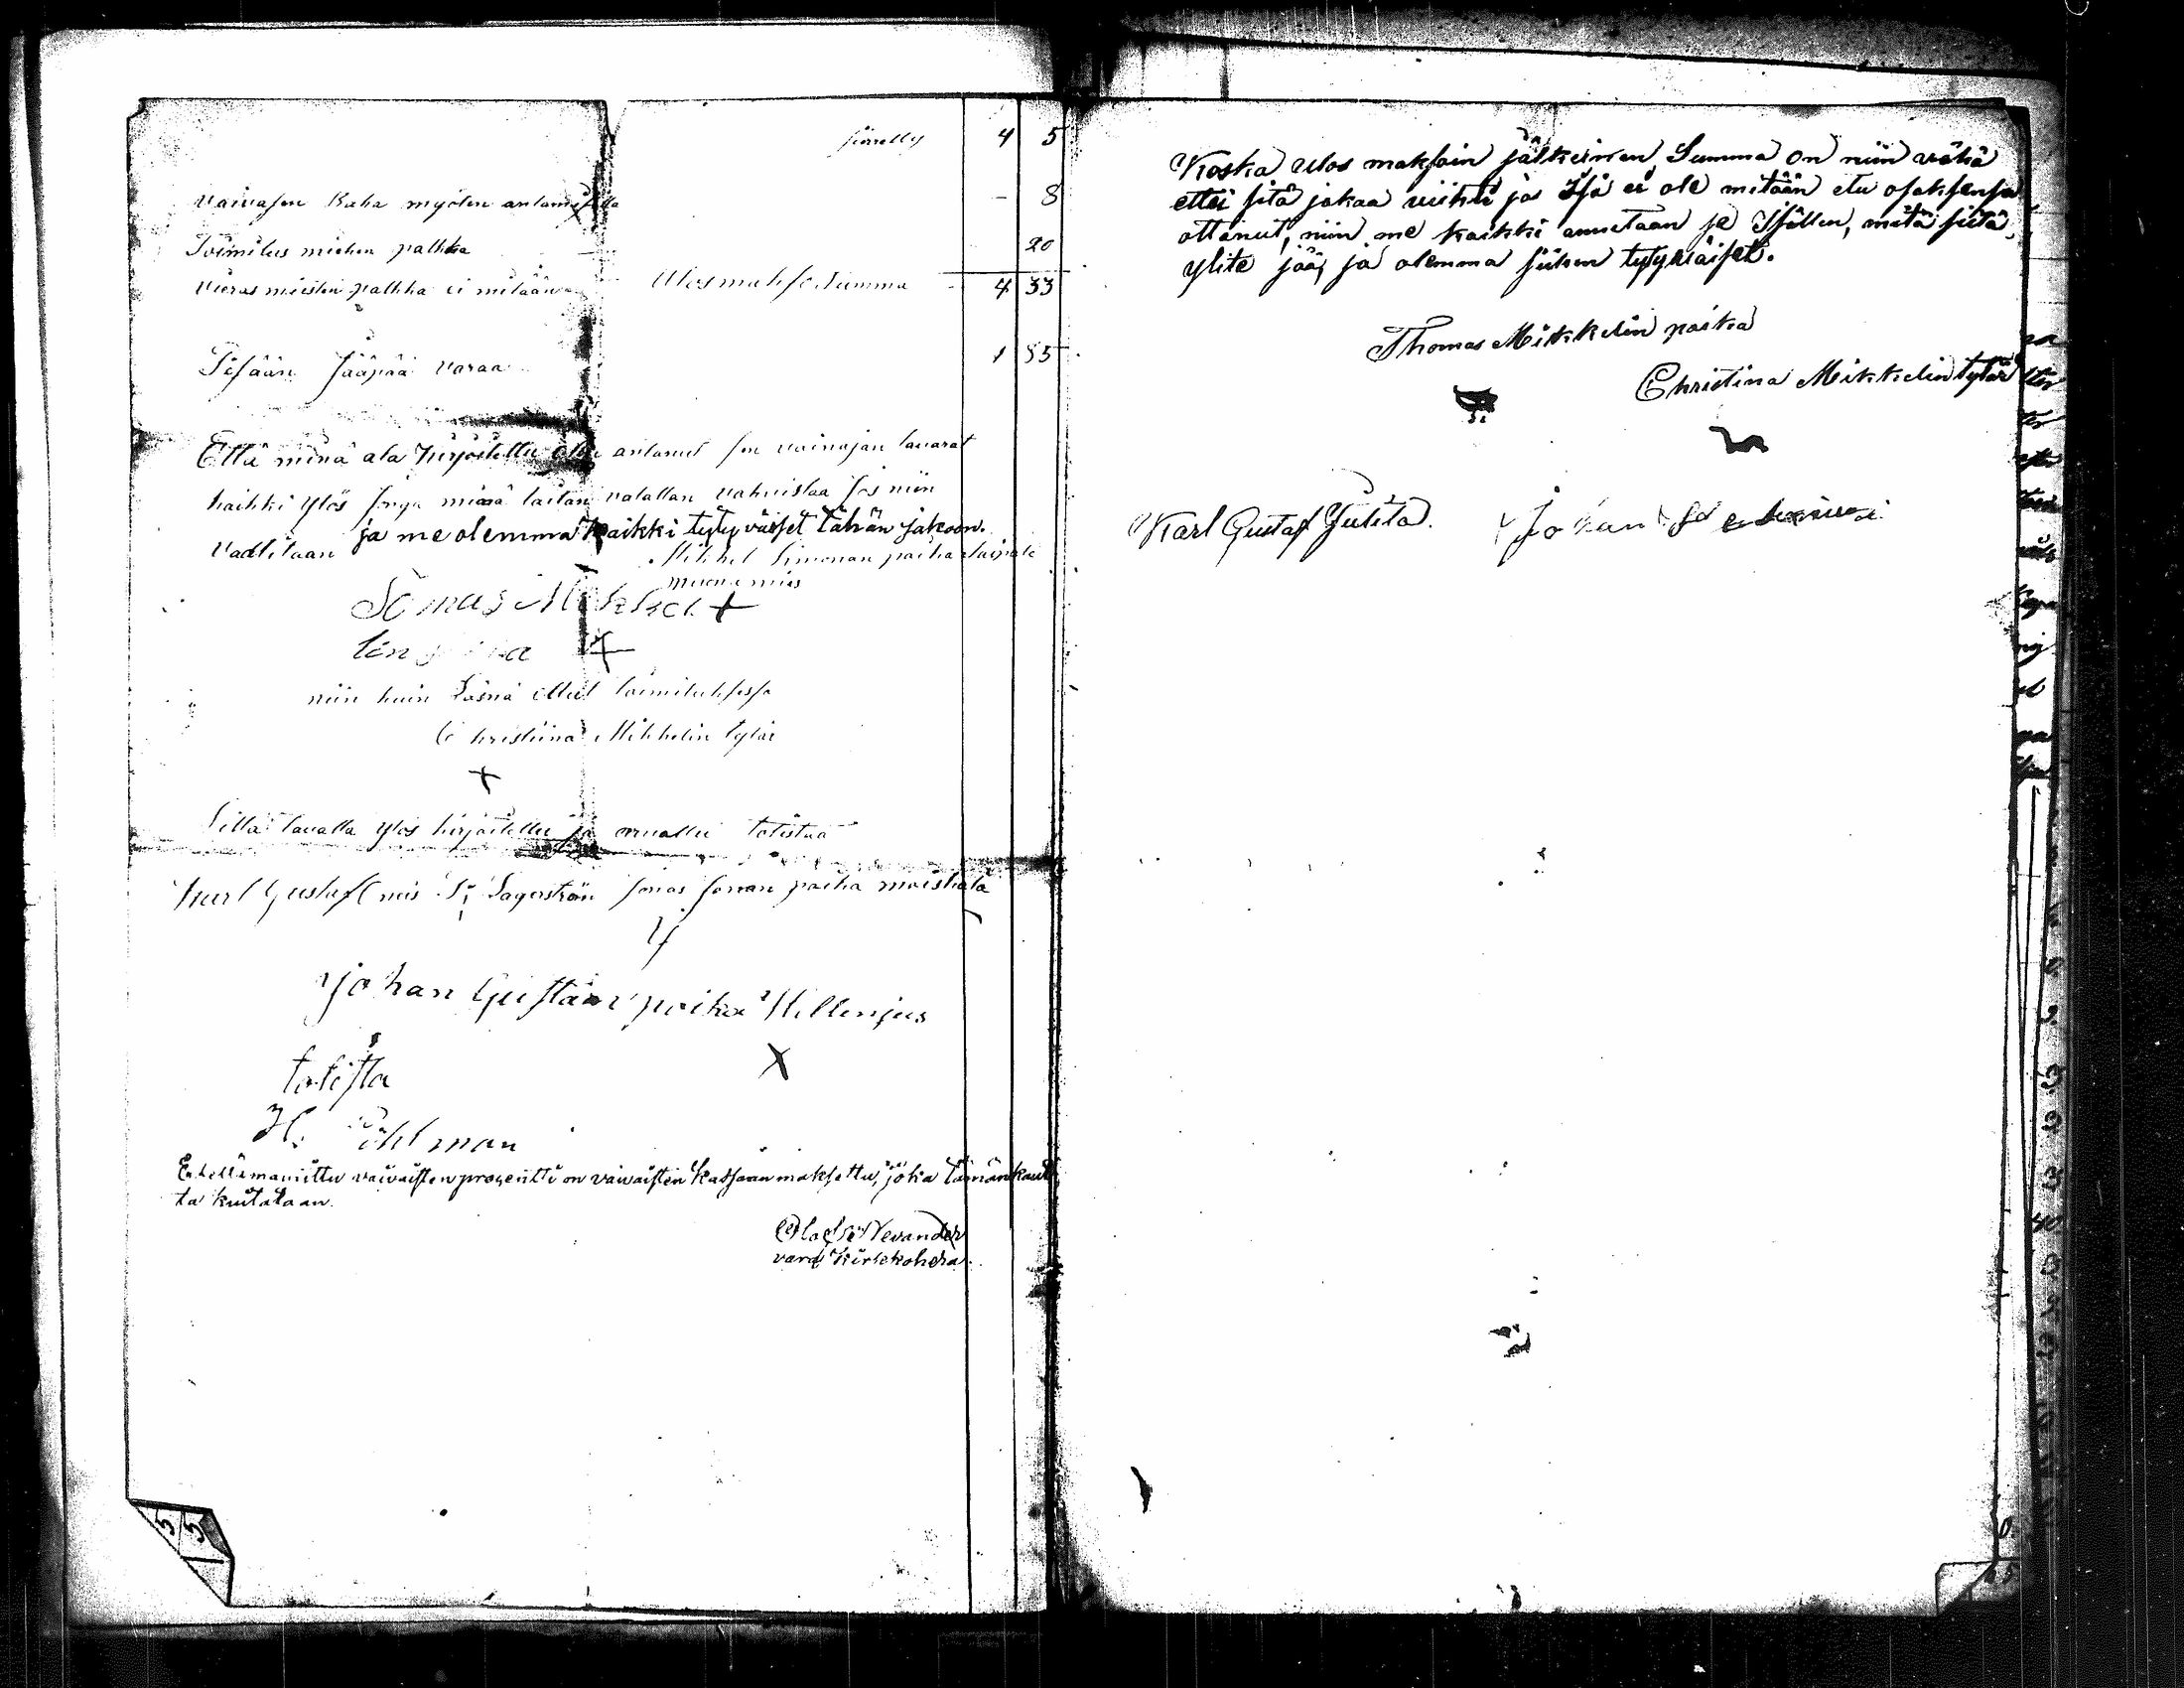 siirretty 4 5
vaivasen Raha myöten antamisella - 8
Toimitus miehen palkka - 20
vieras miesten palkka ei mitään Ulosmakso Summa 4 33
Pesään jääpää varaa 1 85
Että minä ala kirjoitettu olen antanut sen vainajan tavarat
kaikki ylös jonga minä taitan valallan vahvistaa jos niin
vaaditaan ja me olemma kaikki tytyväiset tähän jakoon.
Mikkel Simonan poika
muona mies
Tomas Mikkel +
+
niin kuin Läsnä ollut toimituksessa
Christiina Mikkelin tytär
+
Sillä tavalla ylös kirjoitettu ja arvattu totistaa
Karl Gustaf Lagerström Jonas poika
Johan Gustaav poika Hellenjus
totista X
H. Öhlman
Edellämainittu vaivaisten prosentti on vaivaisten Kassaan maksettu, joka tämän kaut
ta kuitataan.
Olof Levander
vara Kirkkohera.
Koska ulos maksoin jälkeinen Summa on niin vähä
ettei sitä jakaa viitti ja Isä ei ole mitään etu osaksensa
ottanut, niin me kaikki annetaan se Isällen, mitä siitä
ylite jää, ja olemma siihen tytyväiset.
Thomas Mikkelin poika
Christina Mikkelin tytär
Karl Gustaf Juleta. Johan